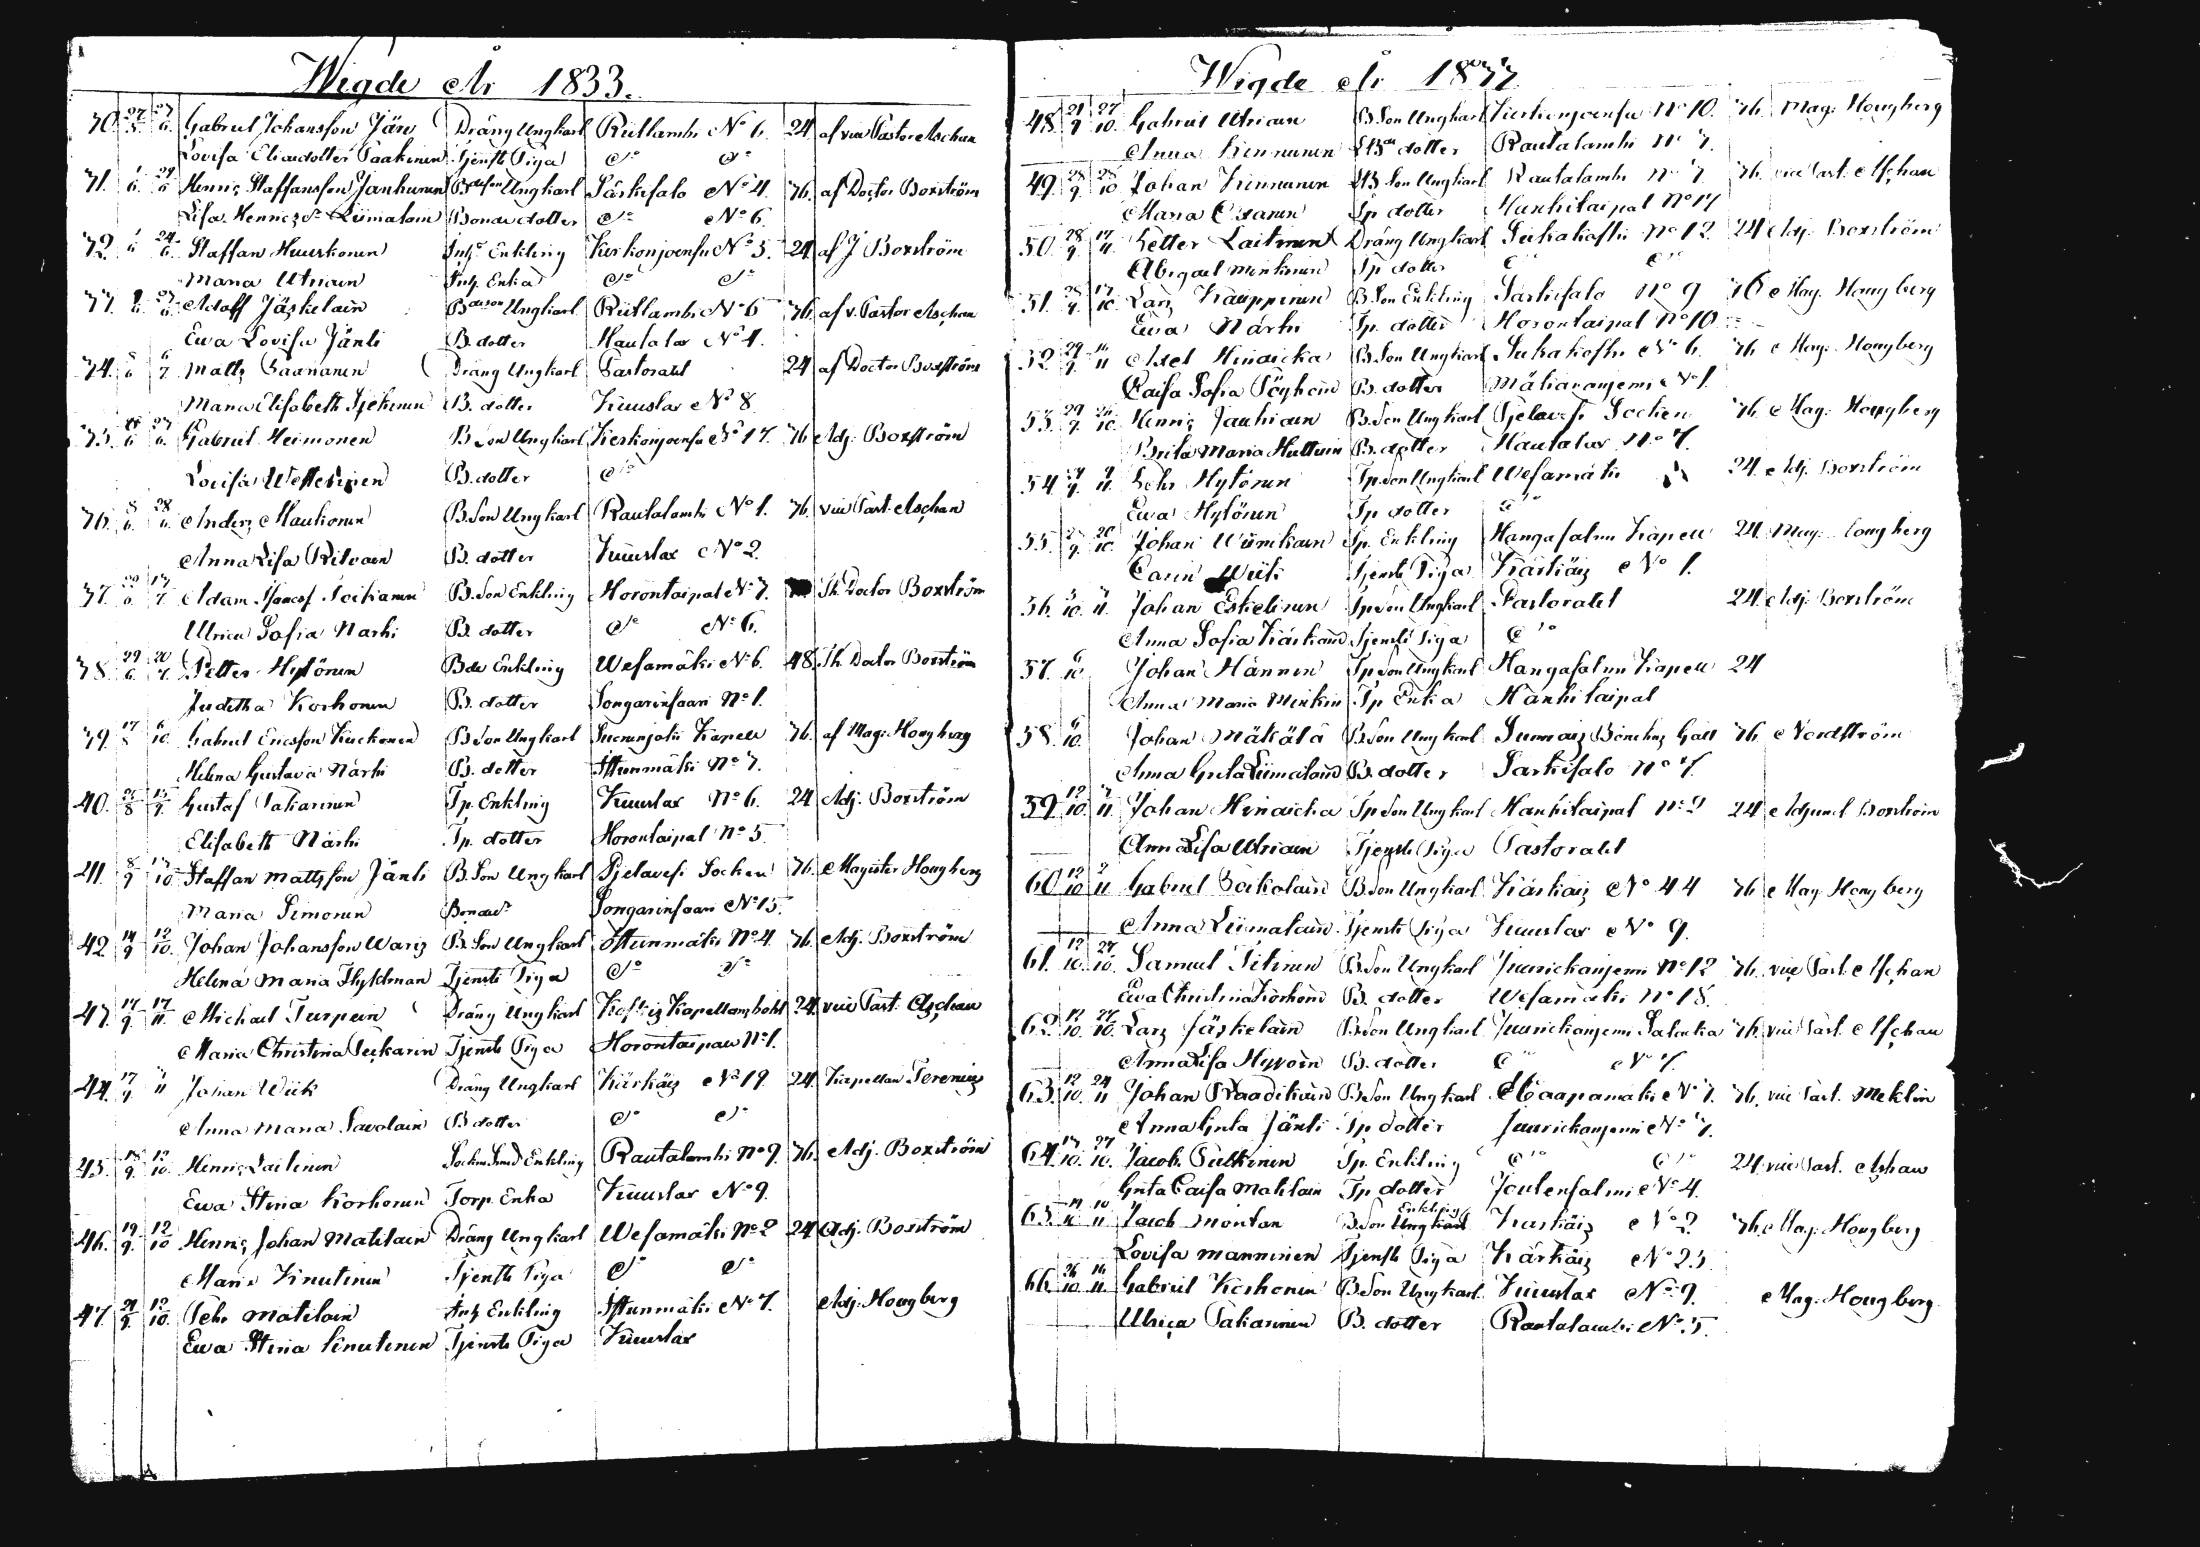 Wigde År 1833.
30. 27/5 27/6. Gabriel Johansson Järv Dräng Ungkarl Riitlambi No 6. 24 af vice Pastor Aschan
Lovisa Eliaedotter Paakinen Tjenste Piga do do
31. 1/6 24/6 Henric Staffansson Janhunen Bdeson Ungkarl Särkisalo No 4. 76. af Doctor Boxström
Lisa Henricsdr Liimatain Bonde dotter do No 6.
32. 1/6 24/6 Staffan Huuskonen Inhs Enkling Kerkonjoensu No 5. 24 af J Boxström
Maria Utriain Inhs Enka do do
33. 2/6 27/6 Adolf Jäskelain Bdeson Ungkarl Riitlambi No 6 76. af v. Pastor Aschan
Ewa Lovisa Jänti B. dotter Hautolax No 4.
34. 8/6 6/7 Matts Saananen Dräng Ungkarl Pastoratet 24 af Doctor Boxström
Maria Elisabeth B. dotter Kuuslax No 8
35. 27/6. Gabriel Heimonen B Son Ungkarl Kerkonjoensu No 17. 76 Adj. Boxström
Lovisa Westerinen B. dotter do
36. 8/6. 28/6. Anders Maukonen B. Son Ungkarl Rautalambi No 1. 76. vice Past. Aschan
Anna Lisa Ritvain B. dotter Kuuslax No 2.
37. 17/7. Adam Poikanen B. Son Enkling Horontaipal No 7. Th. Doctor Boxström
Ulrica Sofia Närhi B. dotter do No 6.
38. 29/6. 20/7. Petter Hytönen Bde Enkling Wesamäki No 6. 48 Th. Doctor Boxström
Juditha Korhonen B. dotter Songarinsaari No 1.
39. 17/8 6/10. Gabriel Ericsson Kuckonen B Son Ungkarl Kapell 76. af Mag: Hougberg
Helena Gustava Närhi B. dotter Istunmäki No 7.
40. 25/8 15/9. Gustaf Pakarinen Tp. Enkling Kuuslax No 6. 24 Adj. Boxström
Elisabeth Närhi Tp. dotter Horontaipal No 5
41. 8/9 13/10 Staffan Mattsson Jänti B. Son Ungkarl Pjelavesi Socken 76. Magister Hougberg
Maria Simonen Bonder Songarinsaari No 15.
42 14/9 12/10. Johan Johansson Waris B. Son Ungkarl Istunmäki No 4. 76. Adj. Boxström
Helena Maria Tjenste Piga do do
43. 17/9. 17/11. Michael Turpein Dräng Ungkarl Kapellansbohl 24. vice Past. Aschan
Maria Christina Tjenste Piga Horontaipal No 1.
44. 17/9 /11 Johan Wiik Dräng Ungkarl Kärkäis No 19. 24. Kapellan
Anna Maria Savolain B dotter do do
45. 18/9. 12/10. Henric Laitinen Enkling Rautalambi No 9. 76. Adj. Boxström
Ewa Stina Korhonen Torp. Enka Kuuslax No 9.
46. 19/9. 12/10 Henric Johan Matilain Dräng Ungkarl Wesamäki No 2 24 Adj. Boxström
Maria Knutinen Tjenste Piga do do
47. 21/9. 12/10. Pehr Matilain Inhs Enkling Istunmäki No 7. Adj. Hougberg
Ewa Stina Knutinen Tjenste Piga Kuuslax
Wigde År 1833.
48. 21/9 27/10. Gabriel Utriain B Son Ungkarl Kerkonjoensu No 10. 76. Mag: Hougberg
Anna Kinnunen dotter Rautalambi No 7.
49. 28/9. 28/10 Johan Kinnunen Son Ungkarl Rautalambi No 7. 76. vice Past. Aschan
Maria Oisanen Tp dotter Hankitaipal No 14
50. 28/9. 17/11. Petter Laitinen Dräng Ungkarl Suckakoski No 12. 24 Adj. Boxström
Abigael Minkinen Tp dotter do do
51. 28/9. 17/10. Lars Kauppinen B. Son Enkling Särkisalo No 9 76 Mag. Hougberg
Ewa Närhi Tp. dotter Horontaipal No 10.
52. 29/9. /11 Axel Hinricka B. Son Ungkarl No 6. 76 Mag: Hougberg
Caisa Sofia B. dotter No 1.
53. 29/9. 26/10 Henric Jauhiain B. Son Ungkarl Pjelavesi Socken 76. Mag: Hougberg
Brita Maria Huttuin B. dotter Hautolax No 7.
54. Pehr Hytönen Tp. Son Ungkarl Wesamäki 24. Adj. Boxström
Ewa Hytönen Tp dotter do
55. 20/10. Johan Tp. Enkling Hangasalmi Kapell 24. Mag. Hougberg
Carin Wiik Tjenste Piga Kärkäis No 1.
56. /10. /11. Johan Eskelinen Tp Son Ungkarl Pastoratet 24. Adj. Boxström
Anna Sofia Kärkäin Tjenste Piga do
57. 6/10. Johan Hänninen Tp Son Ungkarl Hangasalmi Kapell 24
Anna Maria Minkin Tp Enka Hankitaipal
58. 6/10. Johan Mäkälä B Son Ungkarl Gäll 76. Nordström
Anna Greta Liimatain B. dotter Särkisalo No 7.
59. 12/10. /11. Johan Hinricka Tp Son Ungkarl Hankitaipal No 2 24 Adjunct Boxström
Anna Lisa Utriain Tjenste Piga Pastoratet
60 12/10 2/11 Gabriel Poikolain B. Son Ungkarl Kärkäis No 44 76 Mag Hougberg
Anna Liimatain Tjenste Piga Kuuslax No 9.
61. 12/10. 27/10. Samuel Pitinen B. Son Ungkarl No 12 76. vice Past. Aschan
Ewa Christina Korhoin B. dotter Wesamäki No 18.
62. 12/10. 27/10. Lars Jäskelain B. Son Ungkarl 76. vice Past. Aschan
Anna Lisa Hyvöin B. dotter do No 7.
63. 12/10. 24/11 Johan Raadikain B. Son Ungkarl Haapamäki No 7. 76. vice Past. Meklin
Anna Greta Jänti Tp dotter No 7.
64. 13/10. 27/10. Jacob Pulkinen Tp. Enkling do do 24. vice Past. Aschan
Greta Caisa Matilain Tp dotter Joutensalmi No 4.
65. 10/11 Jacob Montan B. Son Ungkarl Enkling Kärkäis No 2. 76. Mag: Hougberg
Lovisa Manninen Tjenste Piga Kärkäis No 23.
66. 26/10. 16/11. Gabriel Korhonen B. Son Ungkarl Kuuslax No 9. Mag: Hougberg
Ulrica Pakarinen B. dotter Rautalambi No 5.